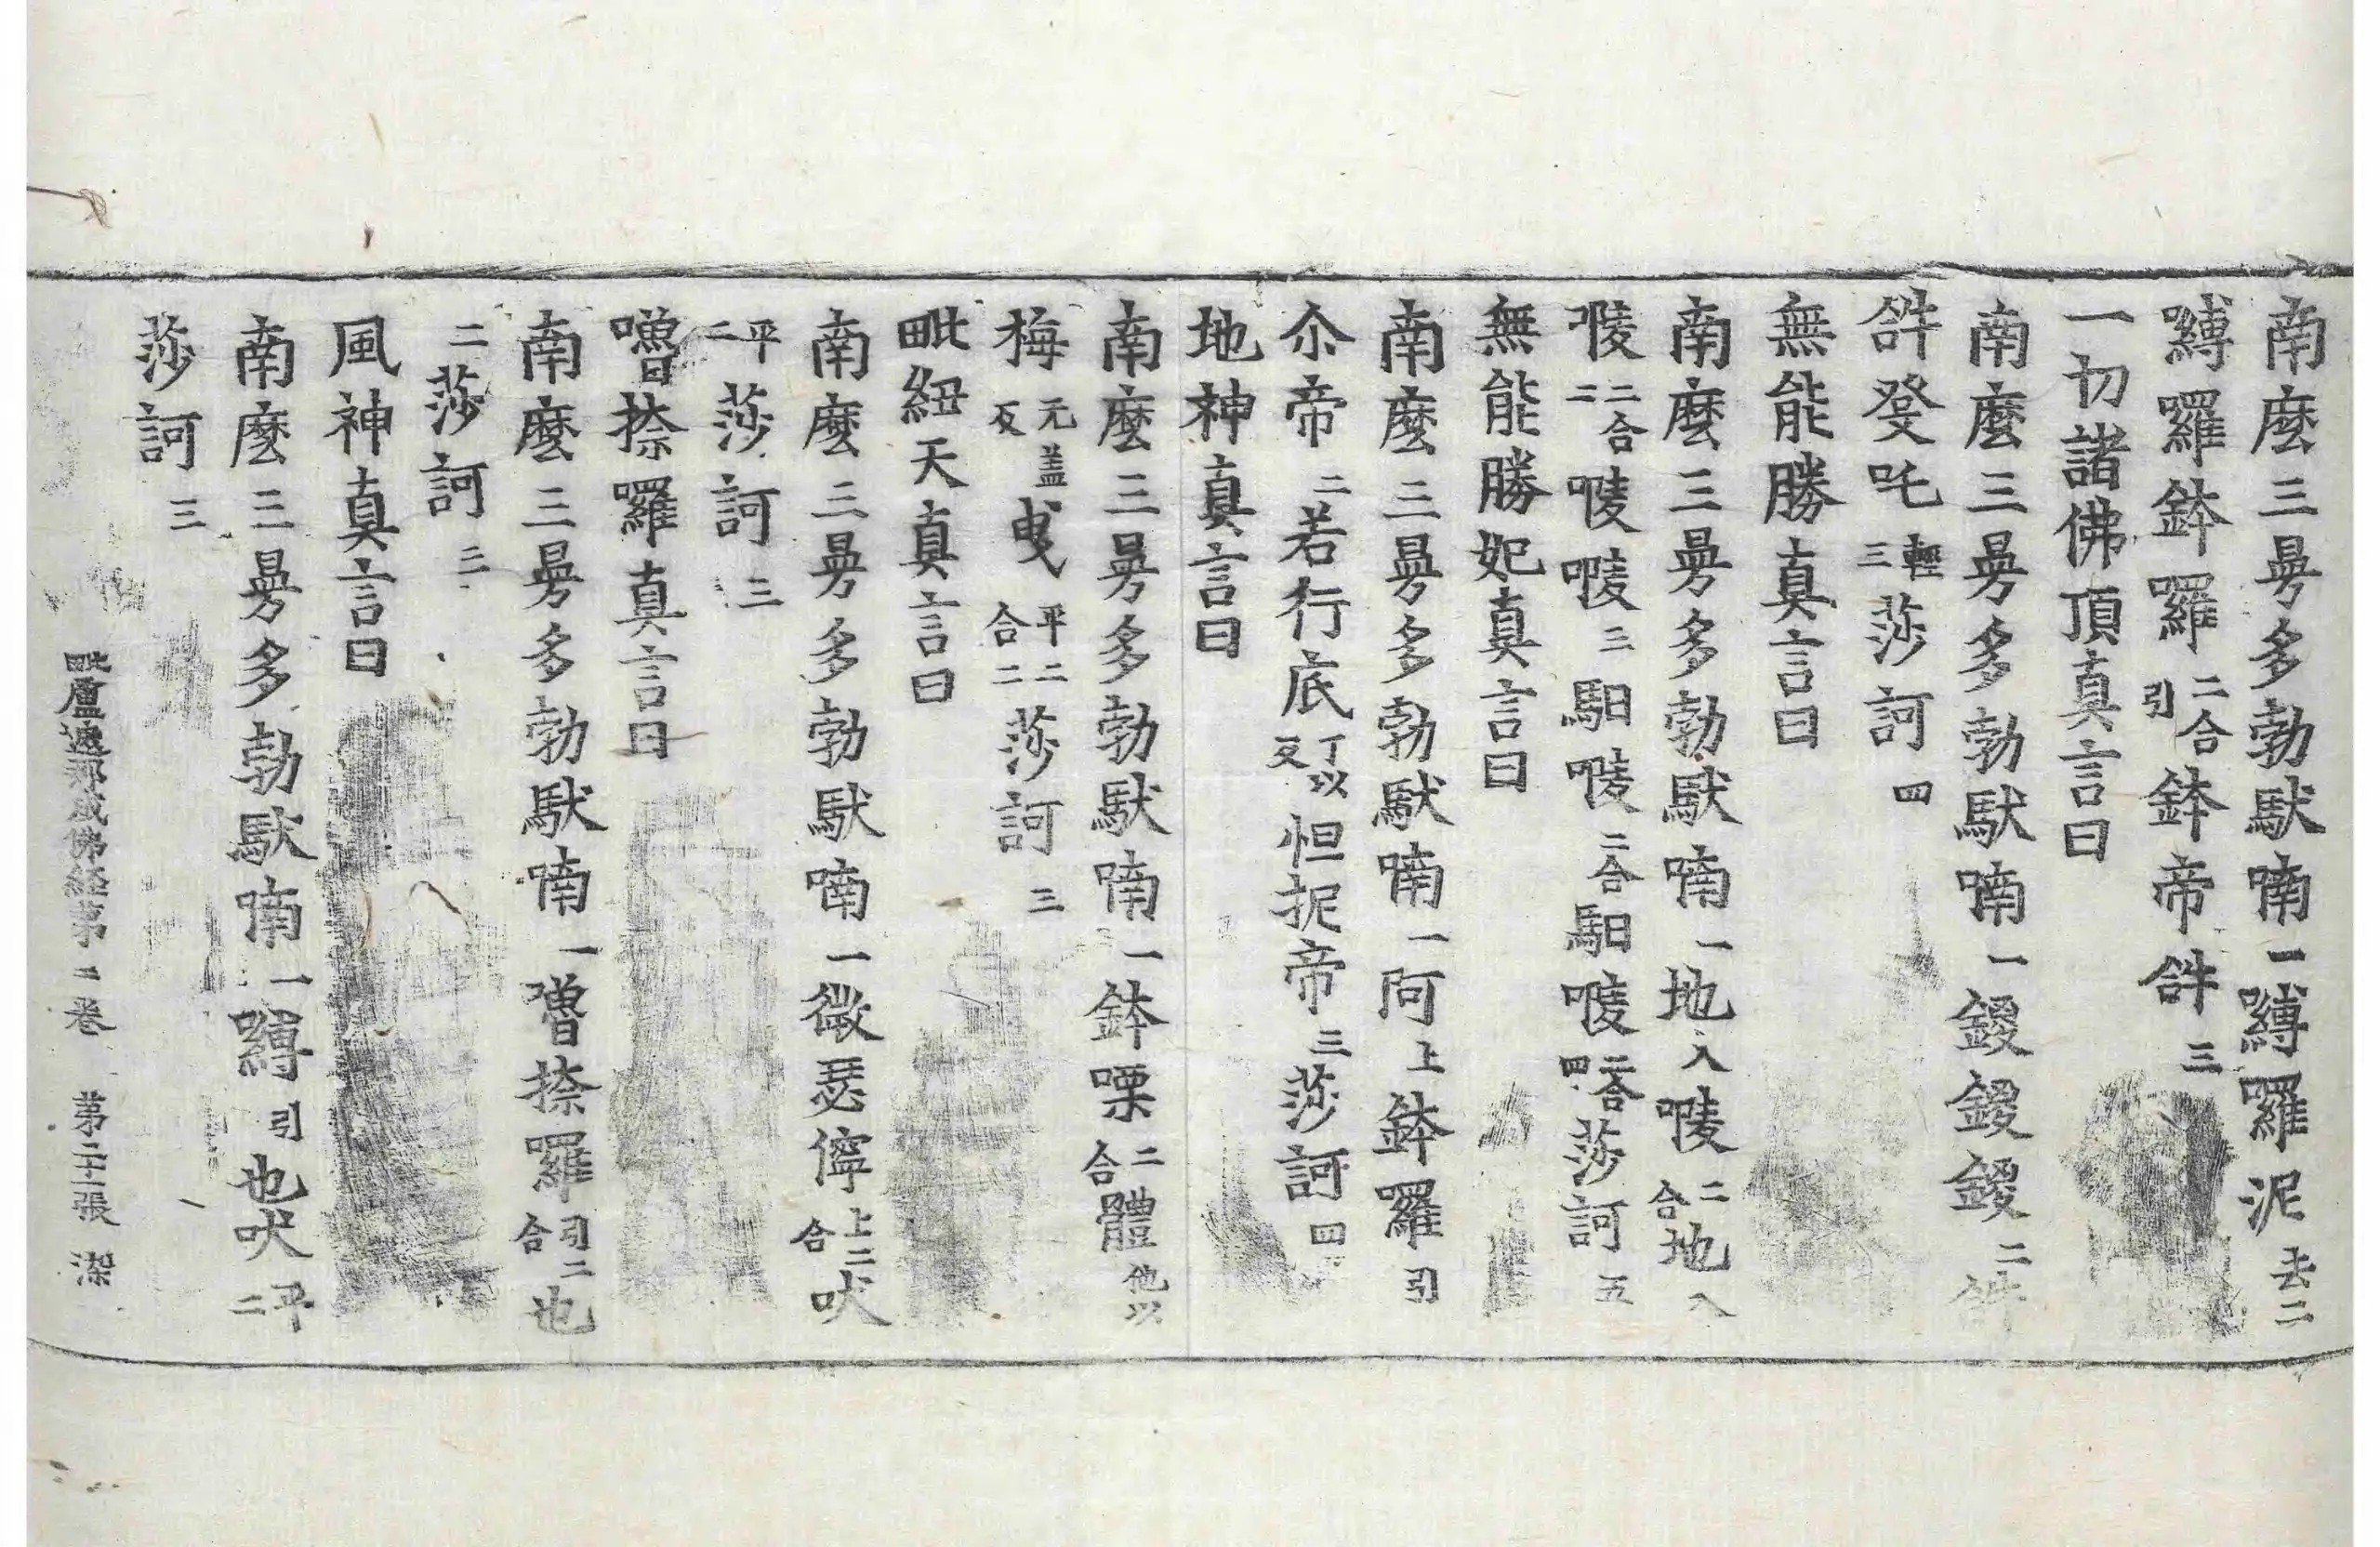 南麽三曼多勃馱喃一縛羅泥去二
嚩囉鉢囉二合引鉢帝𤙖三
一切諸佛頂真言曰
南麽三曼多勃馱喃一鑁鑁鑁二𤙖
𤙖發吒輕三莎訶四
無能勝真言曰
南麽三曼多勃馱喃一地入㘑二合地入
㘑二合二㘑㘑三馹㘑二合馹㘑二合四莎訶五
無能勝妃真言曰
南麽三曼多勃馱喃一阿上鉢羅引
尒帝二若行底丁以反怛抳帝三莎訶四
地神真言曰
南麽三曼多勃馱喃一鉢㗚二合體他以
梅无盖反曳平二合二莎訶三
毗紐天真言曰
南麽三曼多勃馱喃一微瑟儜上二合吠
平二莎訶三
嚕捺囉真言曰
南麽三曼多勃馱喃一嚕捺羅引二合也
二莎訶三
風神真言曰
南麽三曼多勃馱喃一嚩引也吠平二
莎訶三
毗盧遮那成佛經第二卷 第二十二張 染